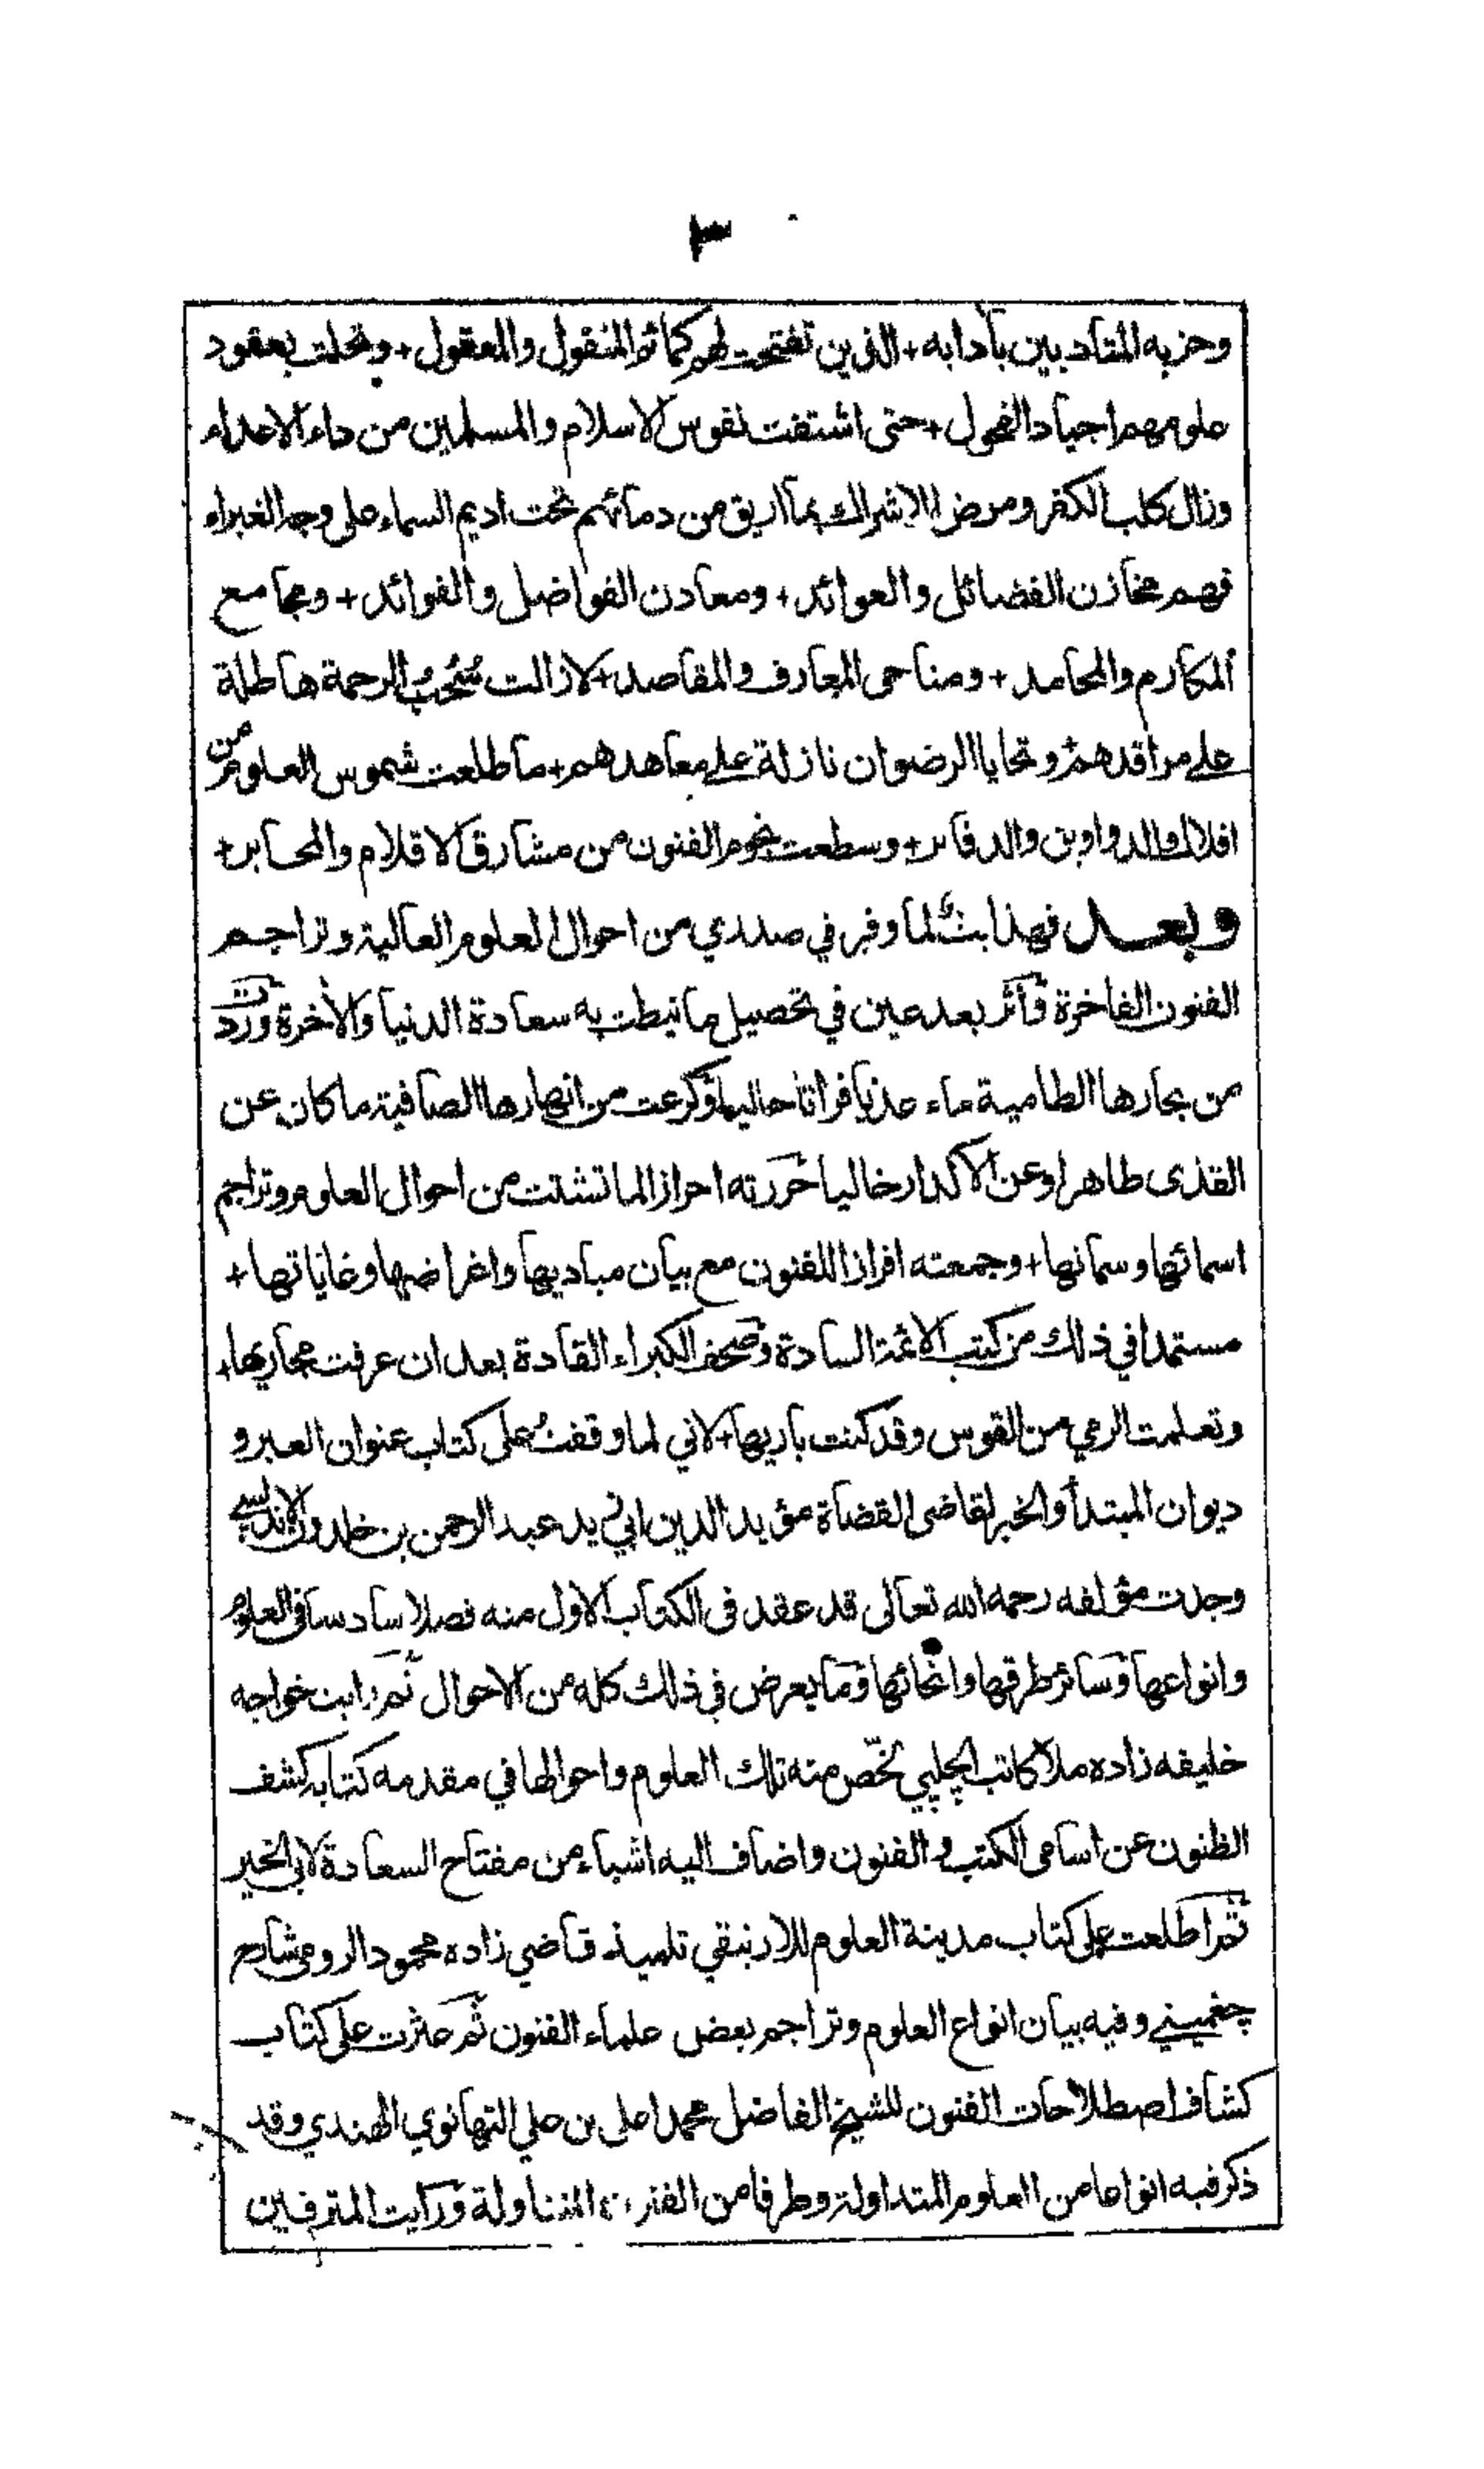 ٣
وحزبه المتأدبين بآدابه + الذين تفتحت لهم كمائم المنقول والمعقول + وتحلت بعقود
علومهم اجياد الفحول + حتى اشتفت نفوس الاسلام والمسلمين من داء الاعداء
وزال كلب الكفر ومرض الاشراك بما اريق من دمائهم تحت اديم السماء على وجه الغبراء
فهم مخازن الفضائل والعوائد + ومعادن الفواضل والفوائد + ومجامع
المكارم والمحامد + ومناحى المعارف والمقاصد + لا زالت سُحُبُ الرحمة هاطلة
على مراقدهم وتحايا الرضوان نازلة على معاهدهم + ما طلعت شموس العلوم من
افلاك الدواوين والدفاتر + وسطعت نجوم الفنون من مشارق الاقلام والمحابر +
وبعد فهذا بثٌ لما وفر في صدري من احوال العلوم العالية وتراجم
الفنون الفاخرة وأثر بعد عين في تحصيل ما نيطت به سعادة الدنيا والأخرة وردت
من بحارها الطامية ماء عذبا فراتا حاليا وكرعت من انهارها الصافية ما كان عن
القذى طاهرا وعن الاكدار خاليا حررته احرازا لما تشتت من احوال العلوم وتراجم
اسمائها وسماتها + وجمعته افرازا للفنون مع بيان مباديها واغراضها وغاياتها +
مستمدا في ذلك من كتب الائمة السادة وصحف الكبراء القادة بعد ان عرفت مجاريها +
وتعلمت الرمي من القوس وقد كنت باريها + لاني لما وقفتُ على كتاب عنوان العبر و
ديوان المبتدأ والخبر لقاضى القضاة مؤيد الدين ابي زيد عبد الرحمن بن خلدون الاندلسي
وجدت مؤلفه رحمه الله تعالى قد عقد فى الكتاب الاول منه فصلا سادسا فى العلوم
وانواعها وسائر طرقها وانحائها وما يعرض في ذلك كله من الاحوال ثم رايت خواجه
خليفه زاده ملا كاتب الچلپي لخّص منه تلك العلوم واحوالها في مقدمه كتابه كشف
الظنون عن اسامى الكتب والفنون واضاف اليه اشياء من مفتاح السعادة لابى الخير
ثم اطلعت على كتاب مدينة العلوم للارنيقي تلميذ قاضي زاده محمود الرومى شارح
چغميني وفيه بيان انواع العلوم وتراجم بعض علماء الفنون ثم عثرت على كتاب
كشاف اصطلاحات الفنون للشيخ الفاضل محمد اعلى بن علي التهانوي الهندي وقد
ذكر فيه انواعا من العلوم المتداولة وطرفا من الفنون المتناولة ورايت المترفين